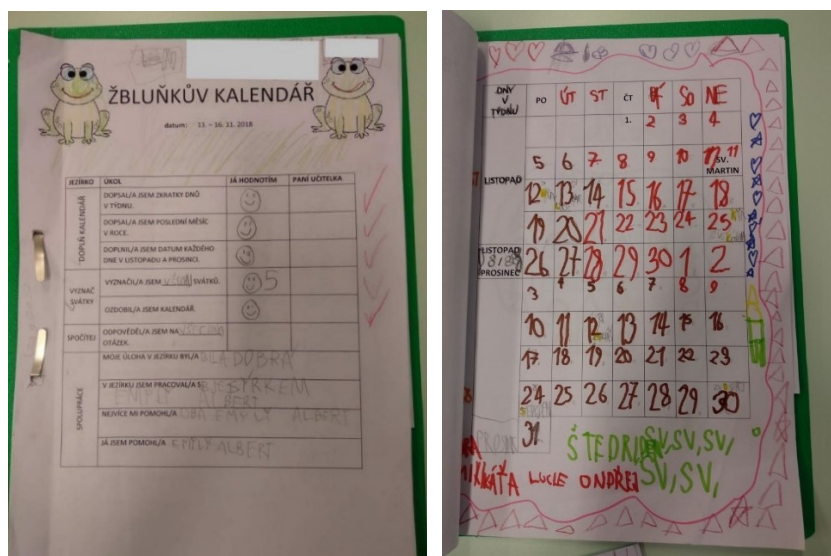 ŽBLUŇKŮV KALENDÁŘ
datum: 13. - 16. 11. 2018
JEZÍRKO ÚKOL JÁ HODNOTÍM PANÍ UČITELKA
DOPLŇ KALENDÁŘ
DOPSAL/A JSEM ZKRATKY DNŮ
V TÝDNU.
DOPSAL/A JSEM POSLEDNÍ MĚSÍC
V ROCE.
DOPLNIL/A JSEM DATUM KAŽDÉHO
DNE V LISTOPADU A PROSINCI.
VYZNAČ
SVÁTKY
VYZNAČIL/A JSEM SVÁTKŮ. 5
OZDOBIL/A JSEM KALENDÁŘ.
SPOČÍTEJ
ODPOVĚDĚL/A JSEM NA
OTÁZEK.
SPOLUPRÁCE
MOJE ÚLOHA V JEZÍRKU BYL/A BILA DOBRÁ
V JEZÍRKU JSEM PRACOVAL/A S
EMILY ALBERT
NEJVÍCE MI POMOHL/A OBA EMILY ALBERT
JÁ JSEM POMOHL/A EMILY ALBERT
DNY
V
TÝDNU
PO ÚT ST ČT SO NE
1. 2 3 4
5 6 7 8 9 10 11
SV.
MARTIN
LISTOPAD
12 13 14 15 16 17 18
19 20 21 22 23 24 25
LISTOPAD
PROSINEC
26 27 28 29 30 1 2
3 4 5 6 7 8 9
10 11 12 13 14 15 16
17 18 19 20 21 22 23
24 25 26 27 28 29 30
31
SV, SV, SV,
KÁŤA LUCIE ONDŘEJ SV, SV,